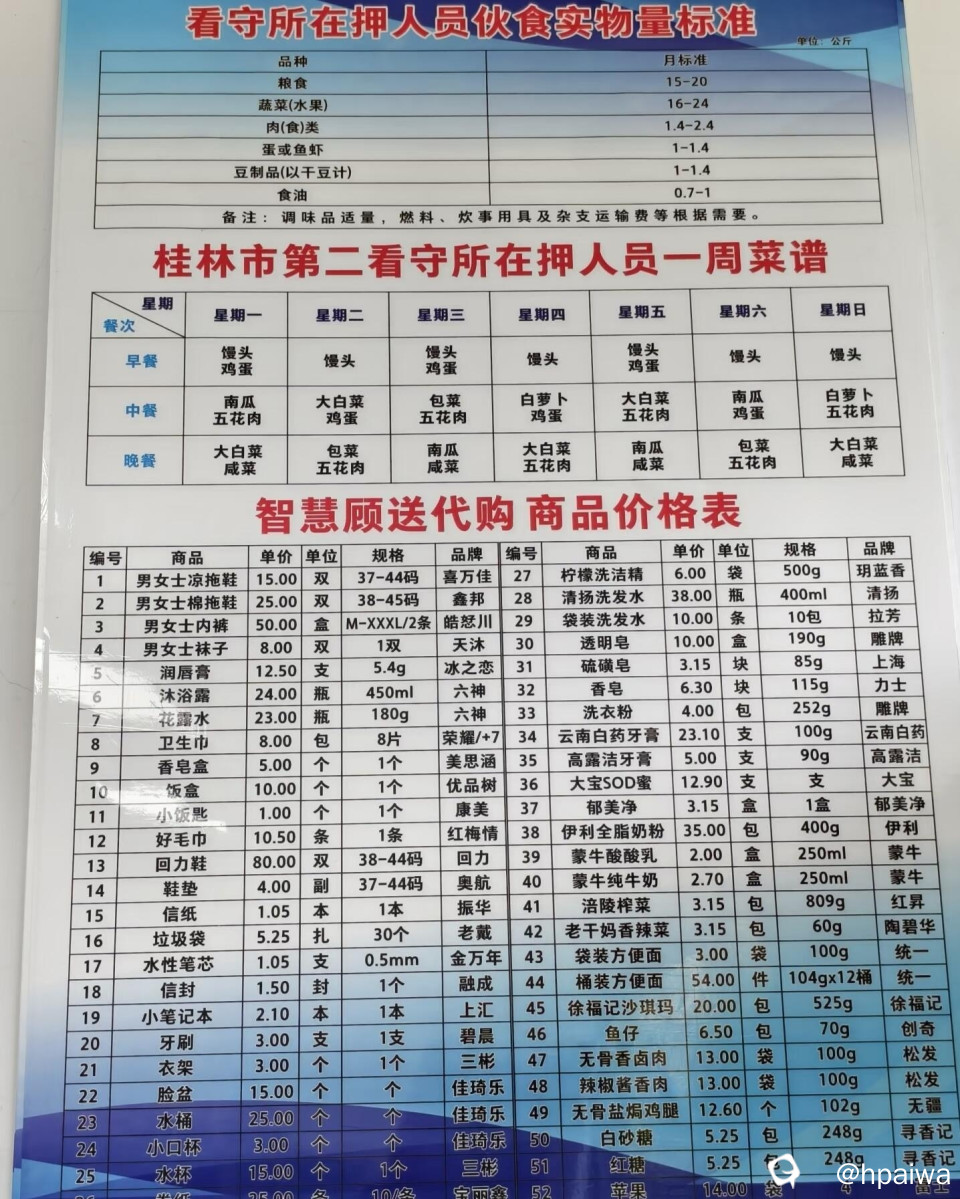 看守所在押人员伙食实物量标准
单位：公斤
品种 月标准
粮食 15-20
蔬菜(水果) 16-24
肉(食)类 1.4-2.4
蛋或鱼虾 1-1.4
豆制品(以干豆计) 1-1.4
食油 0.7-1
备注：调味品适量，燃料、炊事用具及杂支运输费等根据需要。
桂林市第二看守所在押人员一周菜谱
星期 餐次 星期一 星期二 星期三 星期四 星期五 星期六 星期日
早餐 馒头 鸡蛋 馒头 馒头 鸡蛋 馒头 馒头 鸡蛋 馒头 馒头
中餐 南瓜 五花肉 大白菜 鸡蛋 包菜 五花肉 白萝卜 鸡蛋 大白菜 五花肉 南瓜 鸡蛋 白萝卜 五花肉
晚餐 大白菜 咸菜 包菜 五花肉 南瓜 咸菜 大白菜 五花肉 南瓜 咸菜 包菜 五花肉 大白菜 咸菜
智慧顾送代购 商品价格表
编号 商品 单价 单位 规格 品牌 编号 商品 单价 单位 规格 品牌
1 男女士凉拖鞋 15.00 双 37-44码 喜万佳 27 柠檬洗洁精 6.00 袋 500g 玥蓝香
2 男女士棉拖鞋 25.00 双 38-45码 鑫邦 28 清扬洗发水 38.00 瓶 400ml 清扬
3 男女士内裤 50.00 盒 M-XXXL/2条 皓怒川 29 袋装洗发水 10.00 条 10包 拉芳
4 男女士袜子 8.00 双 1双 天沐 30 透明皂 10.00 盒 190g 雕牌
5 润唇膏 12.50 支 5.4g 冰之恋 31 硫磺皂 3.15 块 85g 上海
6 沐浴露 24.00 瓶 450ml 六神 32 香皂 6.30 块 115g 力士
7 花露水 23.00 瓶 180g 六神 33 洗衣粉 4.00 包 252g 雕牌
8 卫生巾 8.00 包 8片 荣耀/+7 34 云南白药牙膏 23.10 支 100g 云南白药
9 香皂盒 5.00 个 1个 美思涵 35 高露洁牙膏 5.00 支 90g 高露洁
10 饭盒 10.00 个 1个 优品树 36 大宝SOD蜜 12.90 支 支 大宝
11 小饭匙 1.00 个 1个 康美 37 郁美净 3.15 盒 1盒 郁美净
12 好毛巾 10.50 条 1条 红梅情 38 伊利全脂奶粉 35.00 包 400g 伊利
13 回力鞋 80.00 双 38-44码 回力 39 蒙牛酸酸乳 2.00 盒 250ml 蒙牛
14 鞋垫 4.00 副 37-44码 奥航 40 蒙牛纯牛奶 2.70 盒 250ml 蒙牛
15 信纸 1.05 本 1本 振华 41 涪陵榨菜 3.15 包 809g 红昇
16 垃圾袋 5.25 扎 30个 老戴 42 老干妈香辣菜 3.15 包 60g 陶碧华
17 水性笔芯 1.05 支 0.5mm 金万年 43 袋装方便面 3.00 袋 100g 统一
18 信封 1.50 封 1个 融成 44 桶装方便面 54.00 件 104gx12桶 统一
19 小笔记本 2.10 本 1本 上汇 45 徐福记沙琪玛 20.00 包 525g 徐福记
20 牙刷 3.00 支 1支 碧晨 46 鱼仔 6.50 包 70g 创奇
21 衣架 3.00 个 1个 三彬 47 无骨香卤肉 13.00 袋 100g 松发
22 脸盆 15.00 个 个 佳琦乐 48 辣椒酱香肉 13.00 袋 100g 松发
23 水桶 25.00 个 个 佳琦乐 49 无骨盐焗鸡腿 12.60 个 102g 无疆
24 小口杯 3.00 个 个 佳琦乐 50 白砂糖 5.25 包 248g 寻香记
25 水杯 15.00 个 1个 三彬 51 红糖 5.25 包 248g 寻香记
52 苹果 14.00 袋
@hpaiwa